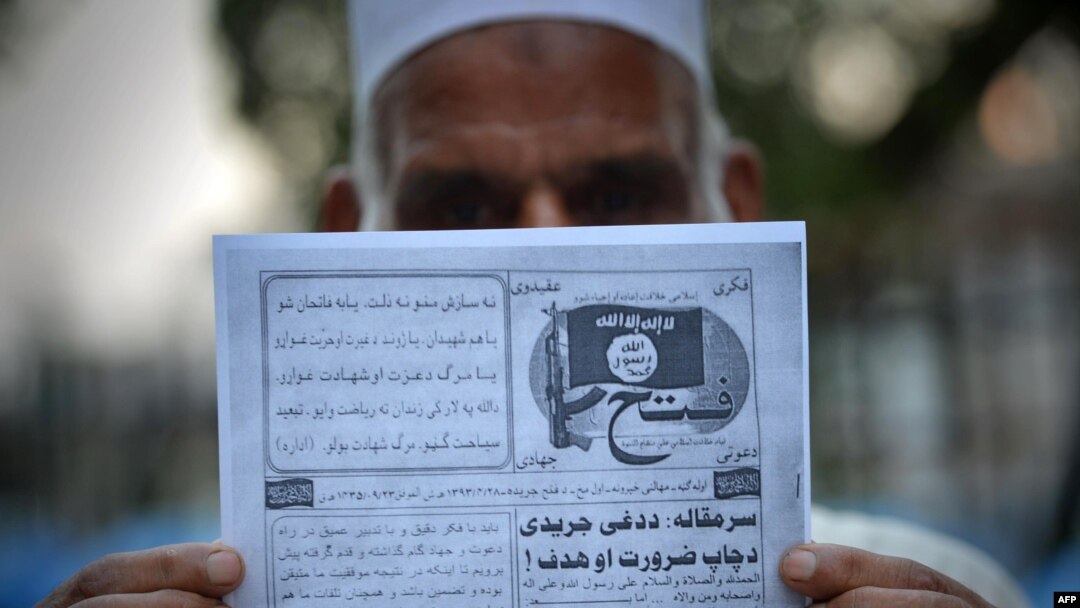 فکري
عقیدوی
اسلامي خلافت اعاده او احیاء شوو
لا إله إلا الله
الله
رسول
محمد
فتح
دعوتی
جهادی
نه سازش منو نه ذلت. یا به فاتحان شو
یا هم شهیدان. یا ژوند د غیرت او حریت غواړو
یا مرگ د عزت او شهادت غواړو.
د الله په لار کی زندان ته ریاضت وایو. تبعید
سیاحت گڼو. مرگ شهادت بولو. (اداره)
اوله گڼه - مهالنی خبرونه - اول مخ - د فتح جریده - ۱۳۹۳/۴/۲۸ هـ ش الموافق ۱۴۳۵/۰۹/۲۳ هـ ق
سرمقاله: ددغی جریدی
دچاپ ضرورت او هدف !
الحمدلله والصلاة والسلام علی رسول الله وعلی اله
واصحابه ومن والاه ... اما بعد:
باید با فکر دقیق و با تدبیر عمیق در راه
دعوت و جهاد گام گذاشته و قدم گرفته پیش
برویم تا اینکه در نتیجه موفقیت ما متیقن
بوده و تضمین باشد و همچنان تلفات ما هم
AFP